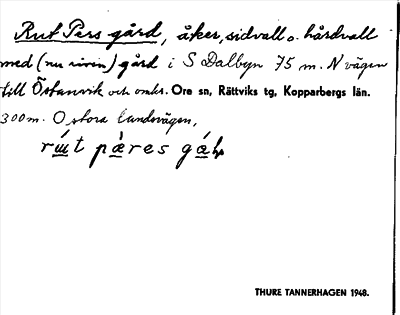 Rut Pers gård, åker, sidvall o. hårdvall
med (nu riven) gård i S Dalbyn 75 m. N vägen
till Östanvik och omkr. Ore sn, Rättviks tg, Kopparbergs län.
300 m. O stora landsvägen,
rút pàres gá
THURE TANNERHAGEN 1948.